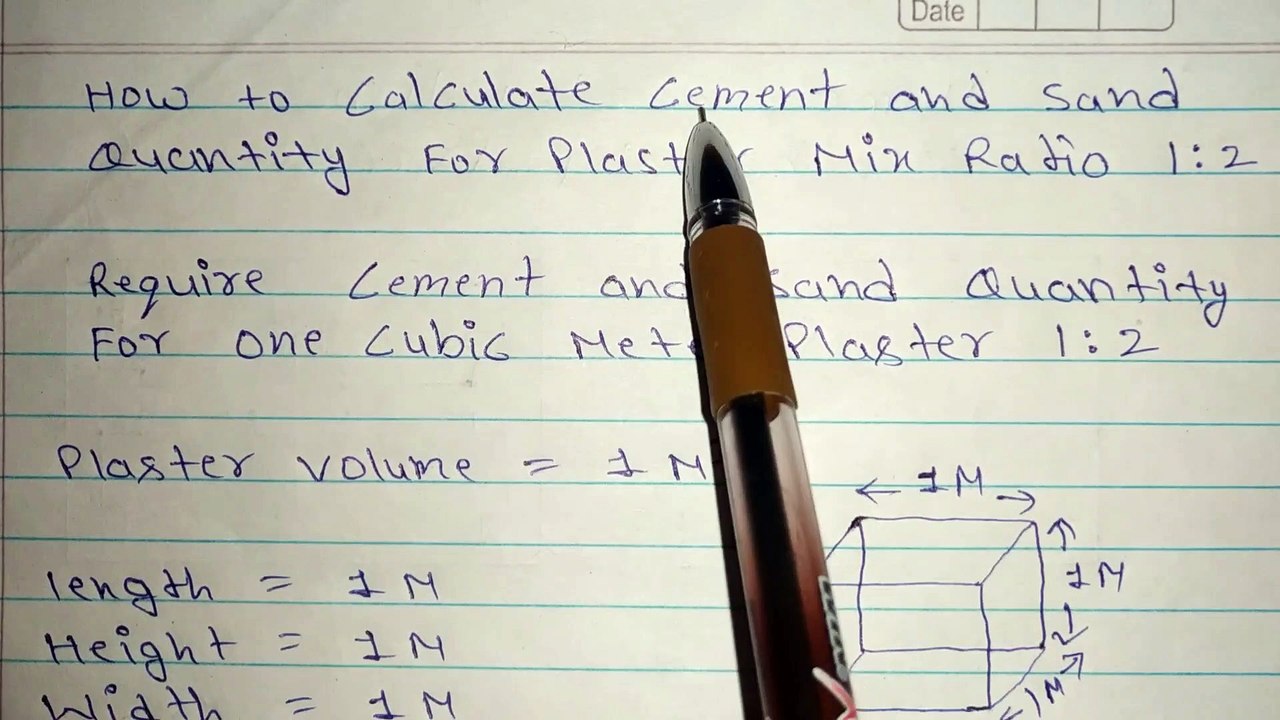 Date
How to Calculate Cement and Sand
Quantity For Plaster Mix Ratio 1:2
Require Cement and Sand Quantity
For one Cubic Plaster 1:2
Plaster volume = 1 M
1M
length = 1 M
1M
Height = 1 M
1M
Width = 1 M